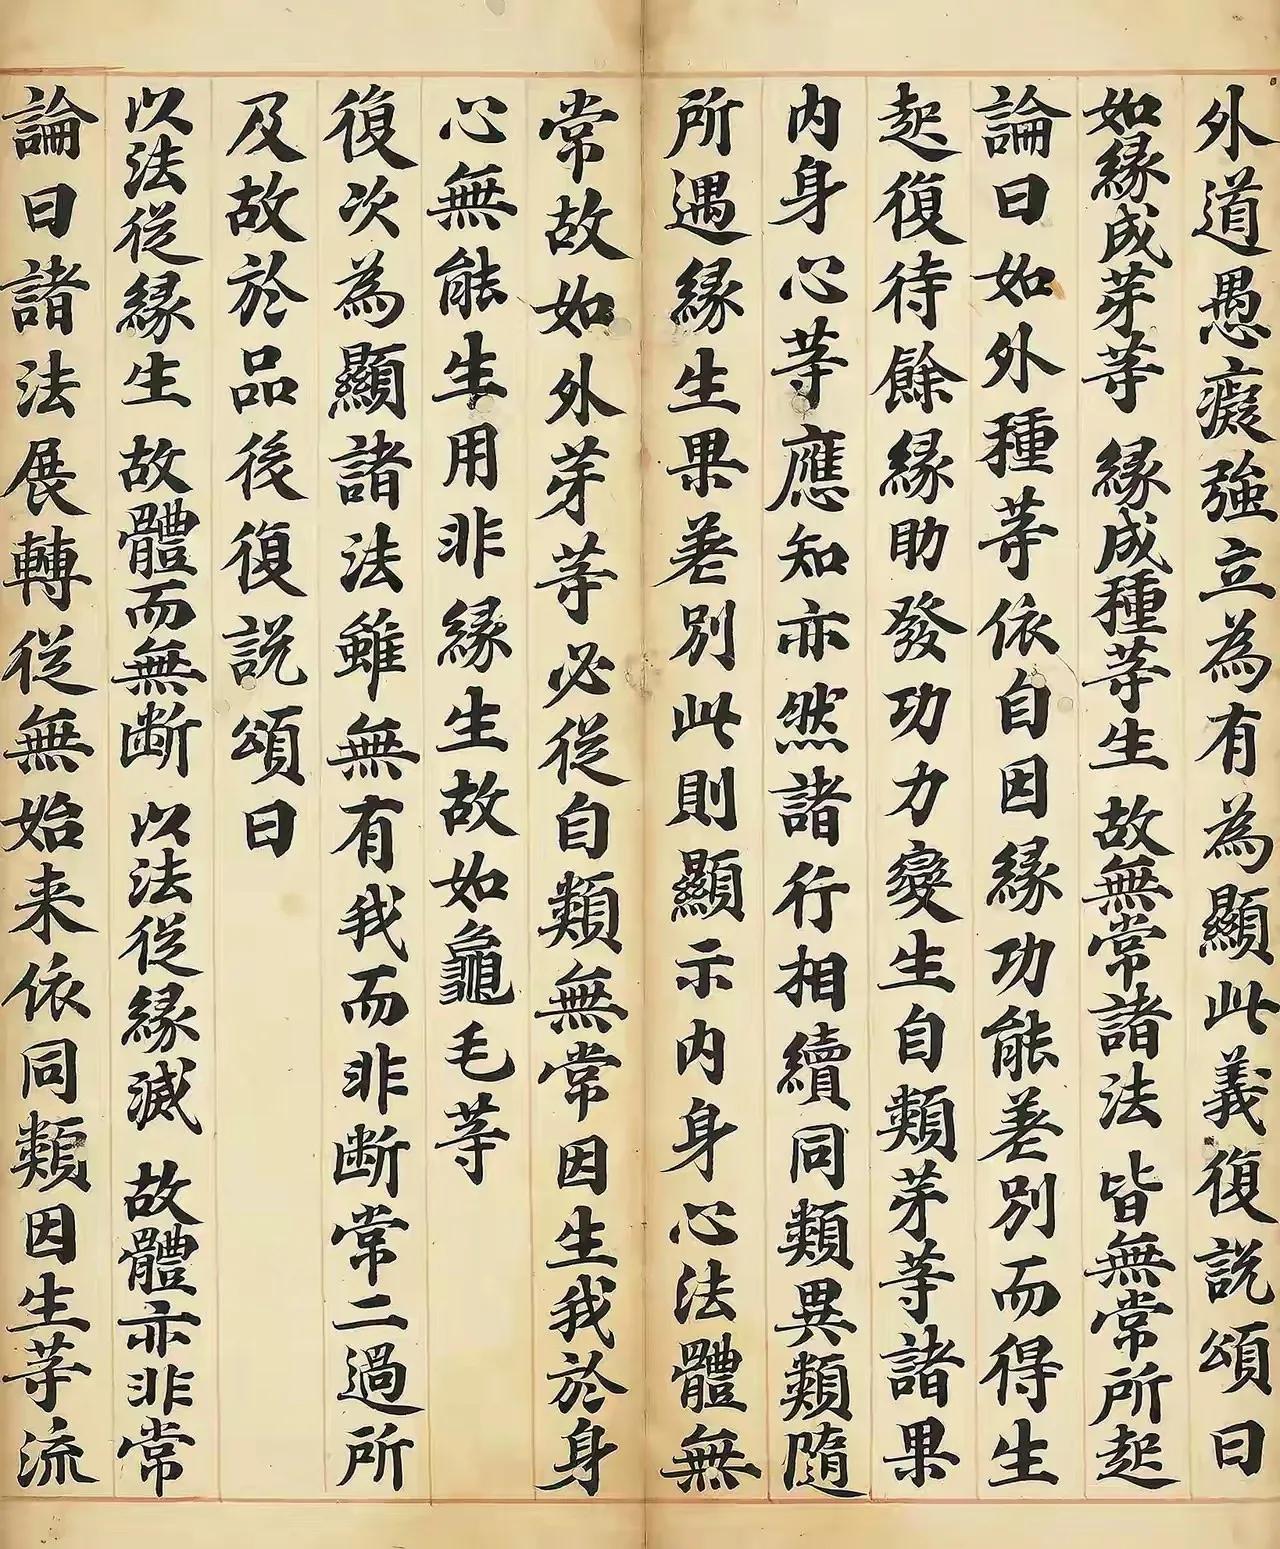 外道愚癡強立為有為顯此義復説頌曰
如縁成芽等　縁成種等生　故無常諸法　皆無常所起
論曰如外種等依自因縁功能差別而得生
起復待餘縁助發功力變生自類芽等諸果
内身心等應知亦然諸行相續同類異類隨
所遇縁生果差別此則顯示内身心法體無
常故如外芽等必從自類無常因生我於身
心無能生用非縁生故如龜毛等
復次為顯諸法雖無有我而非断常二過所
及故於品後復説頌曰
以法從縁生　故體而無断　以法從縁滅　故體亦非常
論曰諸法展轉從無始来依同類因生等流